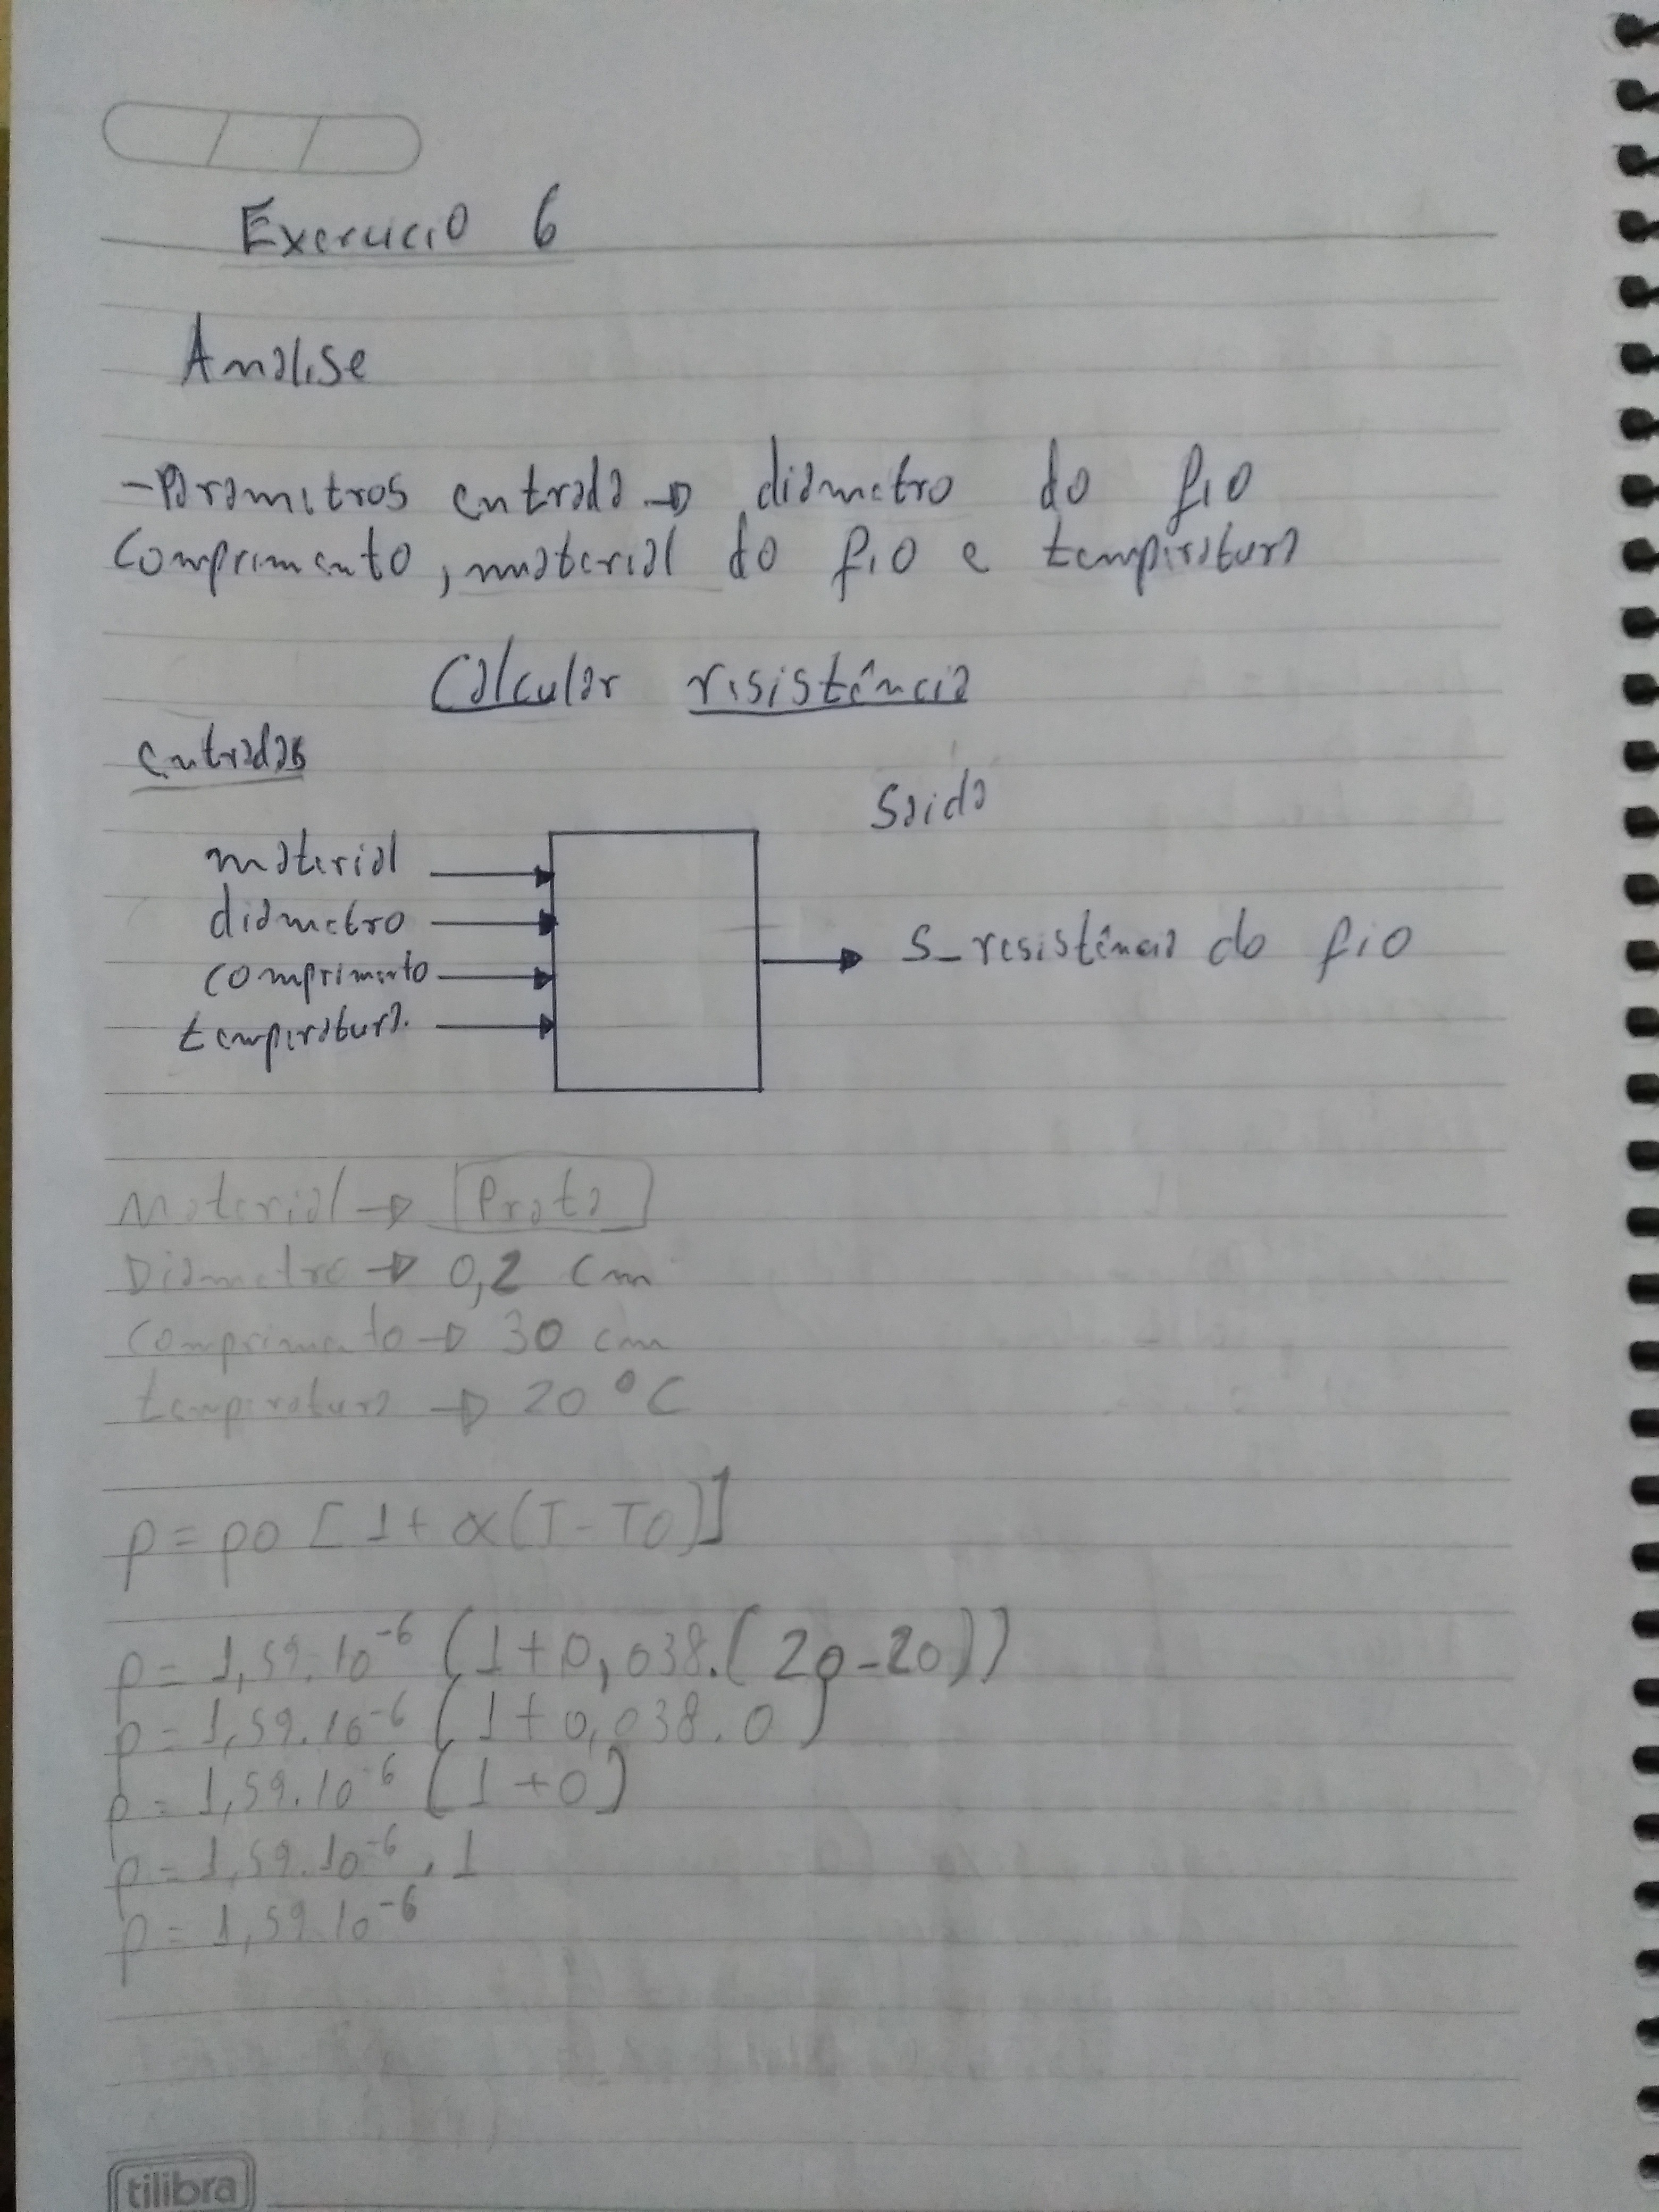 Exercicio 6
Analise
-Parametros entrada → diametro do fio
comprimento, material do fio e temperatura
Calcular resistência
entradas
Saida
material
diametro
comprimento
temperatura.
S_resistência do fio
Material → Prata
Diametro → 0,2 cm
comprimento → 30 cm
temperatura → 20 °C
ρ = ρ0 [1 + α(T - T0)]
ρ = 1,59.10⁻⁶ (1+0,038.(20-20))
ρ = 1,59.10⁻⁶ (1+0,038.0)
ρ = 1,59.10⁻⁶ (1+0)
ρ = 1,59.10⁻⁶ . 1
ρ = 1,59.10⁻⁶
tilibra